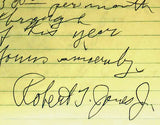 per month
through
of his year
Yours sincerely,
Robert T. Jones Jr.